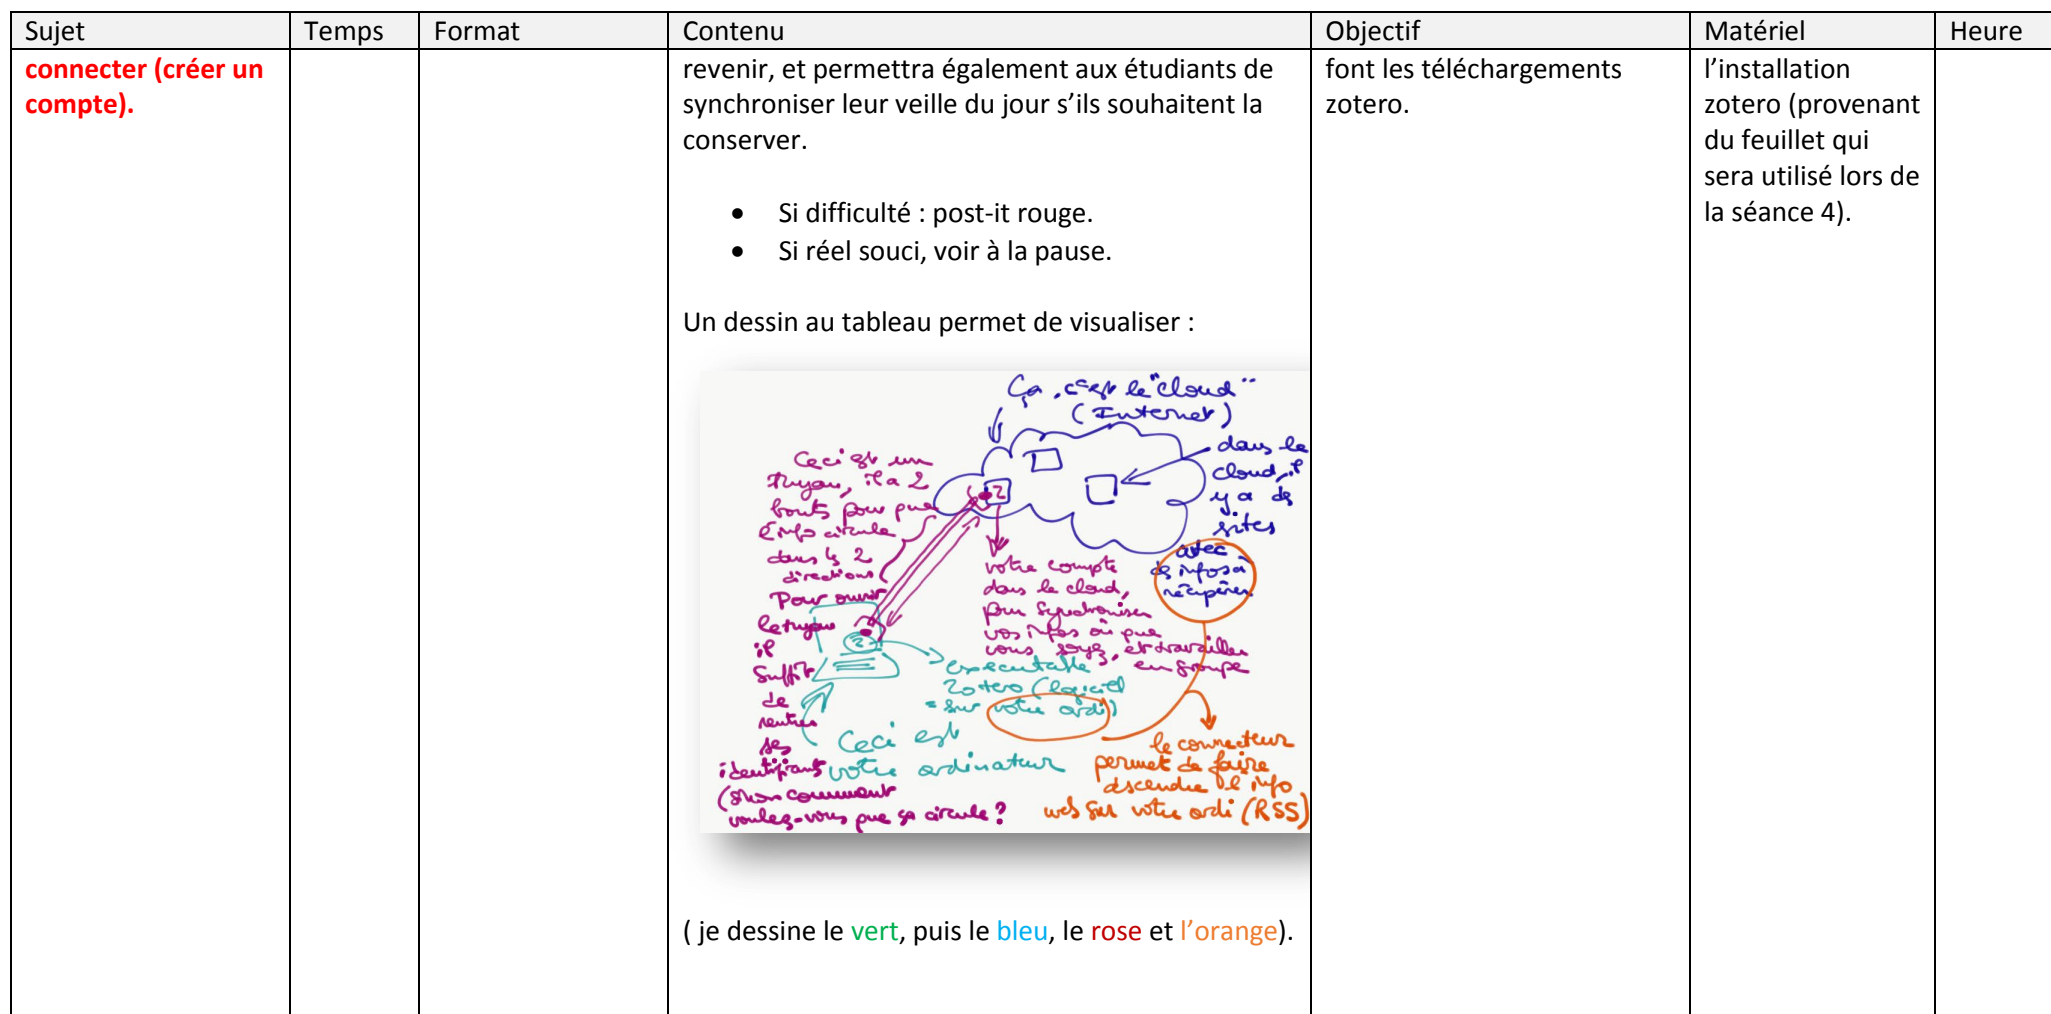 Sujet Temps Format Contenu Objectif Matériel Heure
connecter (créer un
compte).
revenir, et permettra également aux étudiants de
synchroniser leur veille du jour s’ils souhaitent la
conserver.
• Si difficulté : post-it rouge.
• Si réel souci, voir à la pause.
Un dessin au tableau permet de visualiser :
Ça, c'est le "cloud"
(Internet)
dans le
cloud, il
y a des
sites
avec
des infos à
récupérer
Ceci est un
tuyau, il a 2
bouts pour que
l'info circule
dans les 2
directions
Pour ouvrir
le tuyau
il
suffit
de
rentrer
ses
identifiants
(sinon comment
voulez-vous que ça circule ?
votre compte
dans le cloud,
pour synchroniser
vos infos où que
vous soyez, et travailler
en groupe
executable
Zotero (logiciel
= sur votre ordi)
Ceci est
votre ordinateur
le connecteur
permet de faire
descendre l'info
web sur votre ordi (RSS)
( je dessine le vert, puis le bleu, le rose et l’orange).
font les téléchargements
zotero.
l’installation
zotero (provenant
du feuillet qui
sera utilisé lors de
la séance 4).